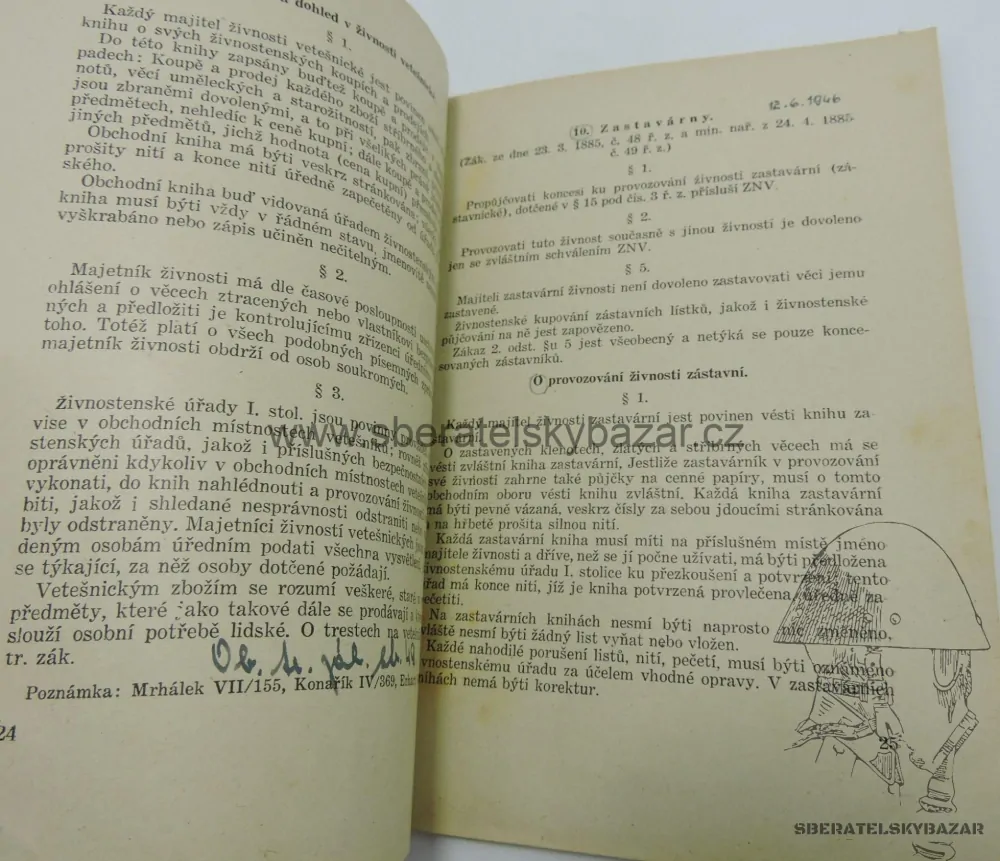 dohled v živnosti vetešnické
§ 1.
Každý majitel živnosti vetešnické jest povinen
knihu o svých živnostenských koupích a prodejích
Do této knihy zapsány buďtež koupě a prodeje
padech: Koupě a prodej každého zboží stříbrného,
notů, věcí uměleckých a starožitností, pak zbraní
jsou zbraněmi dovolenými, a to při všelikých
předmětech, nehledíc k ceně kupní; dále koupě a
jiných předmětů, jichž hodnota (cena kupní)
Obchodní kniha má býti veskrz stránkována,
prošity nití a konce nití úředně zapečetěny od
ského.
Obchodní kniha buď vidována úřadem živnostenským
kniha musí býti vždy v řádném stavu, jmenovitě
vyškrabáno nebo zápis učiněn nečitelným.
§ 2.
Majetník živnosti má dle časové posloupnosti
ohlášení o věcech ztracených nebo vlastníkovi
ných a předložiti je kontrolujícímu zřízenci
toho. Totéž platí o všech podobných písemných
majetník živnosti obdrží od osob soukromých.
§ 3.
živnostenské úřady I. stol. jsou povinny
vise v obchodních místnostech vetešníků; rovněž
stenských úřadů, jakož i příslušných bezpečnostních
oprávněni kdykoliv v obchodních místnostech
vykonati, do knih nahlédnouti a provozování
biti, jakož i shledané nesprávnosti odstraniti
byly odstraněny. Majetníci živností vetešnických
deným osobám úředním podati všechna
se týkající, za něž osoby dotčené požádají.
Vetešnickým zbožím se rozumí veškeré,
předměty, které jako takové dále se prodávají a
slouží osobní potřebě lidské. O trestech na
tr. zák.
Poznámka: Mrhálek VII/155, Konařík IV/369,
24
12. 6. 1946
10. Zastavárny.
(Zák. ze dne 23. 3. 1885, č. 48 ř. z. a min. nař. z 24. 4. 1885.
č. 49 ř. z.)
§ 1.
Propůjčovati koncesi ku provozování živnosti zastavární (zá-
stavnické), dotčené v § 15 pod čís. 3 ř. z. přísluší ZNV.
§ 2.
Provozovati tuto živnost současně s jinou živností je dovoleno
jen se zvláštním schválením ZNV.
§ 5.
Majiteli zastavární živnosti není dovoleno zastavovati věci jemu
zastavené.
živnostenské kupování zástavních lístků, jakož i živnostenské
půjčování na ně jest zapovězeno.
Zákaz 2. odst. §u 5 jest všeobecný a netýká se pouze konce-
sovaných zástavníků.
O provozování živnosti zástavní.
§ 1.
Každý majitel živnosti zastavární jest povinen vésti knihu za-
stavární.
O zastavených klenotech, zlatých a stříbrných věcech má se
vésti zvláštní kniha zastavární, Jestliže zastavárník v provozování
své živnosti zahrne také půjčky na cenné papíry, musí o tomto
obchodním oboru vésti knihu zvláštní. Každá kniha zastavární
má býti pevně vázaná, veskrz čísly za sebou jdoucími stránkována
a na hřbetě prošita silnou nití.
Každá zastavární kniha musí míti na příslušném místě jméno
majitele živnosti a dříve, než se jí počne užívati, má býti předložena
živnostenskému úřadu I. stolice ku přezkoušení a potvrzení, tento
úřad má konce niti, jíž je kniha potvrzená provlečena, úředně za-
pečetiti.
Na zastavárních knihách nesmí býti naprosto nic změněno,
zvláště nesmí býti žádný list vyňat nebo vložen.
Každé nahodilé porušení listů, nití, pečetí, musí býti oznámeno
živnostenskému úřadu za účelem vhodné opravy. V zastavárních
knihách nemá býti korektur.
25
www.sberatelskybazar.cz
SBERATELSKYBAZAR